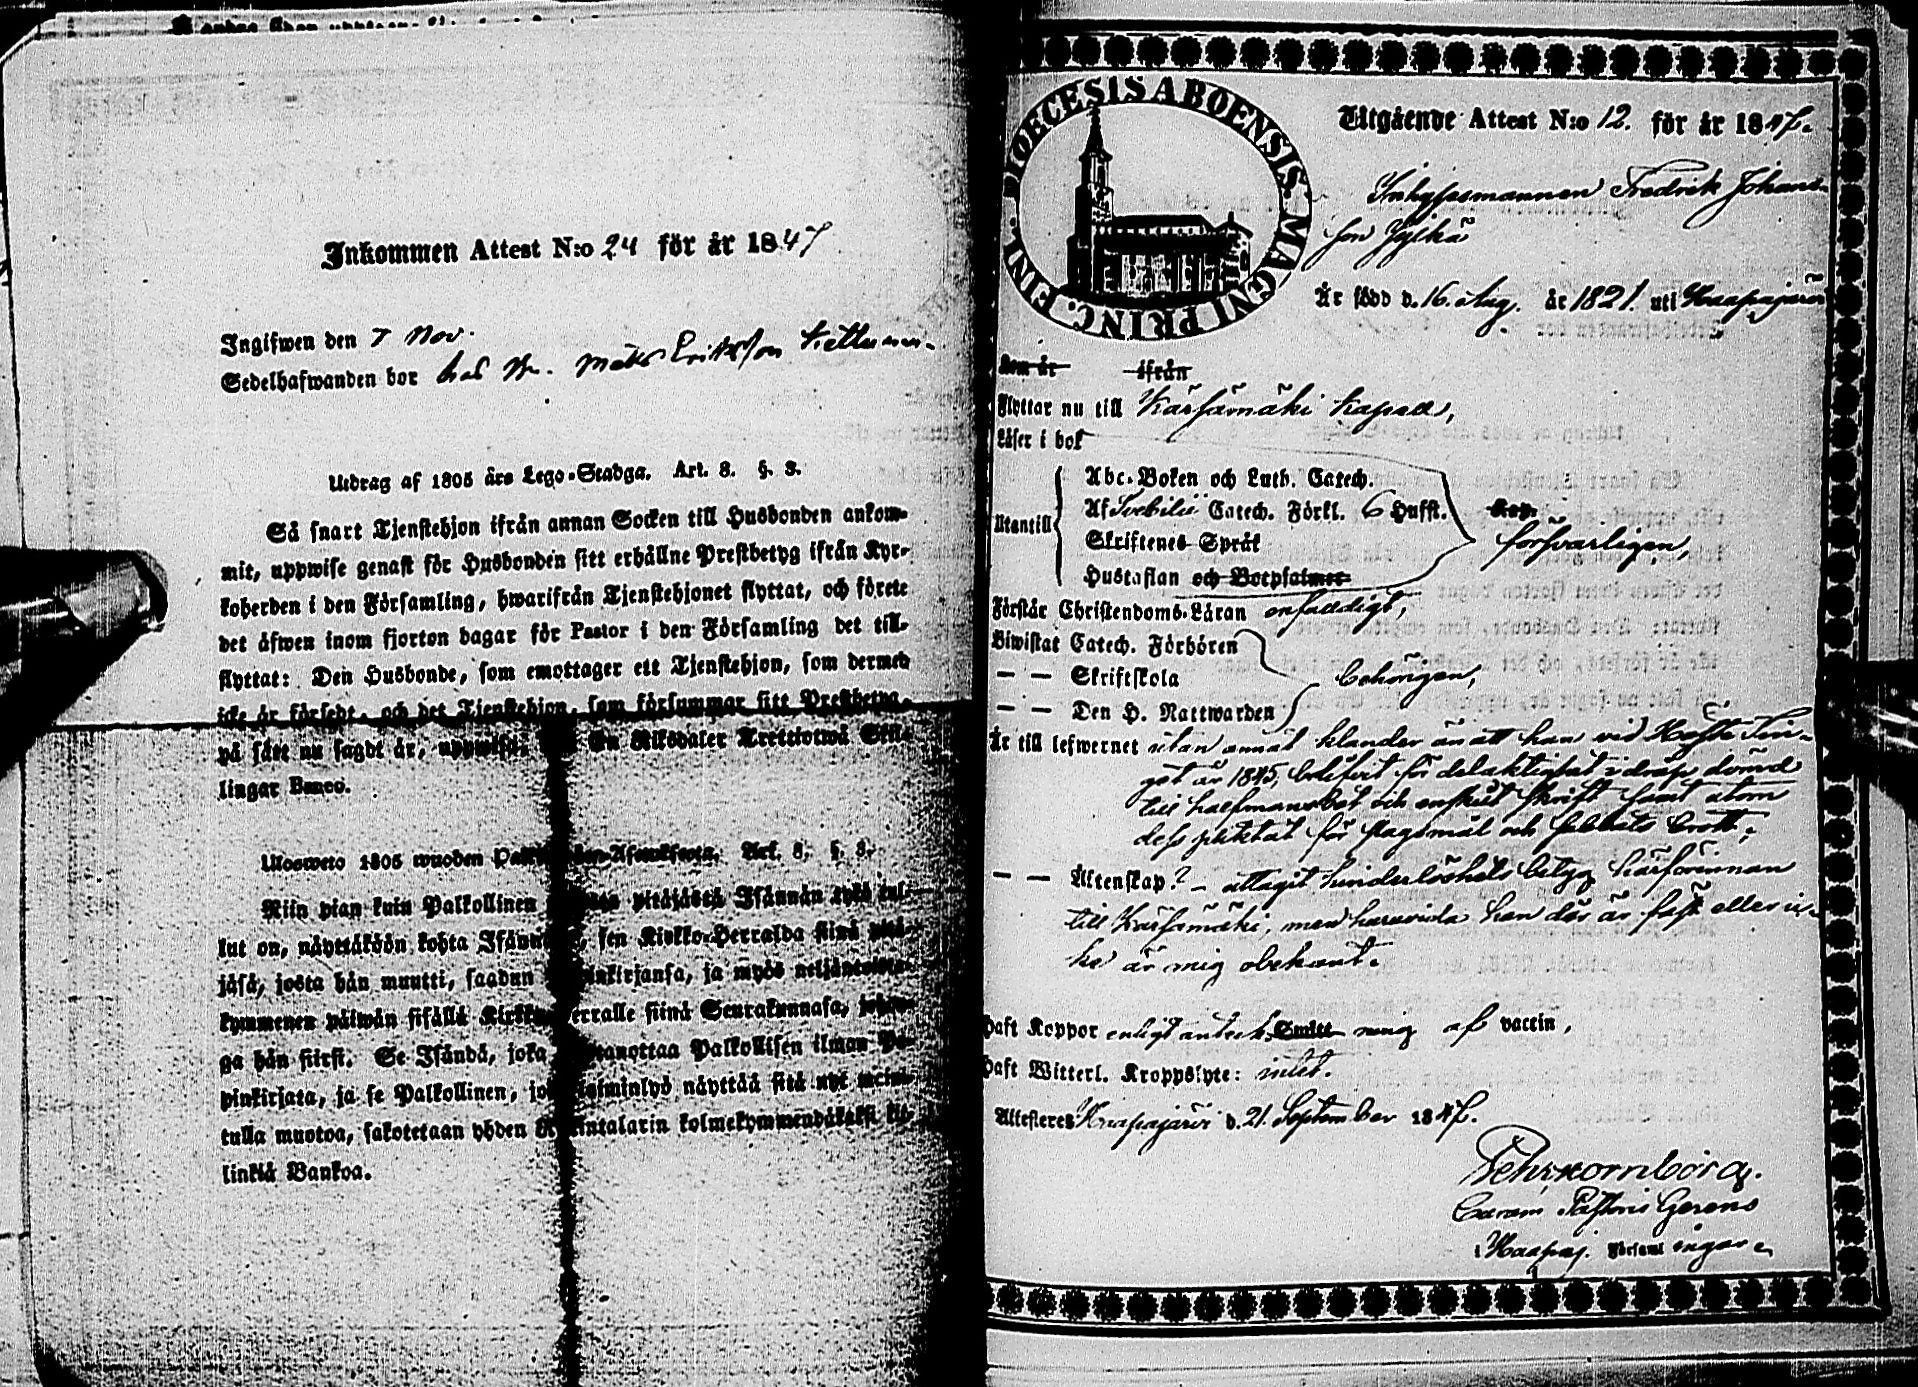 Inkommen Attest N:o 24 för år 1847
Ingifwen den 7 Nov.
Sedelhafwanden bor hos Matts Eriksson
Utdrag af 1805 års Lego-Stadga. Art. 8. §. 3.
Så snart Tjenstehjon ifrån annan Socken till Husbonden ankom-
mit, uppwise genast för Husbonden sitt erhållne Prestbetyg ifrån Kyr-
koherden i den Församling, hwarifrån Tjenstehjonet flyttat, och förete
det äfwen inom fjorton dagar för Pastor i den Församling det till-
flyttat: Den Husbonde, som emottager ett Tjenstehjon, som dermed
icke är försedt, och det Tjenstehjon, som försummar sitt Prestbetyg,
på sätt nu sagdt är, uppwisa, En Riksdaler Trettiotwå Skil-
lingar Banco.
Ulosweto 1805 wuoden Art. 8. §. 3.
Niin pian kuin Palkollinen pitäjästä Isännän tykö tul-
lut on, näyttäköön kohta sen Kirkko-Herralda siinä pitä-
jäsä, josta hän muutti, saadun ja myös neljäntoista-
kymmenen päiwän sisällä Kirkko-Herralle siinä Seurakunnasa, johon-
ga hän siirsi. Se Isändä, joka wastanottaa Palkollisen ilman Pa-
pinkirjata, ja se Palkollinen, joka laiminlyö näyttää sitä nyt meini-
tulla muotoa, sakotetaan yhden Riikintalarin kolmekymmendäkaksi kil-
linkiä Bankoa.
DIOECESIS ABOENSIS. MAGNI PRINC. FINL.
Utgående Attest N:o 12. för år 1847.
Inhysesmannen Fredrik Johans-
son Jylhä
Är född d. 16 Aug. år 1821. uti Haapajärvi
Som är ifrån
Flyttar nu till Kärsämäki Kapell,
Läser i bok
Utantill
Abc-Boken och Luth. Catech.
Af Svebilii Catech. Förkl. 6 Hufst.
Skriftenes Språk
Hustaflan och Botpsalmer
försvarligen,
Förstår Christendoms-Läran enfaldigt,
Biwistat Catech. Förhören
— — Skriftskola
— — Den H. Nattwarden
behörigen,
Är till lefwernet utan annat klander än att han vid Höste Tin-
get år 1845, blifvit för delaktighet i dråp dömd
till half mansbot och enskilt skrift samt utom
dess pliktat för slagsmål och sabbats brott,
— — Äktenskap? – uttagit hinderlöshets betyg härförinnan
till Kärsämäki, men huruvida han der är fäst eller ic-
ke är mig obekant.
Haft Koppor enligt anteckn. Smitt af vaccin,
Haft Witterl. Kroppslyte: intet.
Attesteres Haapajärvi d. 21. September 1847.
Fehrkornborg.
Curam Pastoris Gerens
i Haapaj. Församlingar